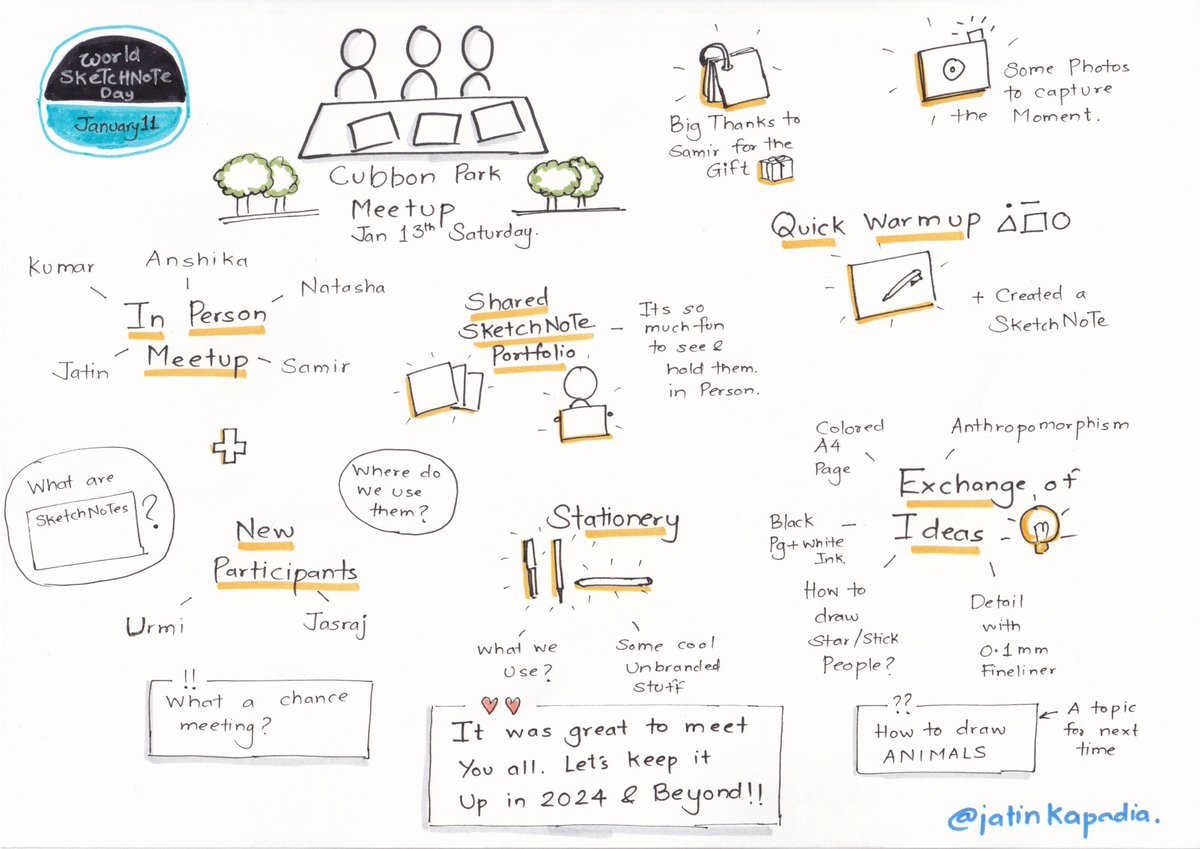 World
SKETCHNOTE
Day
January 11
Cubbon Park
Meetup
Jan 13th Saturday.
Big Thanks to
Samir for the
Gift
Some Photos
to capture
the Moment.
Quick Warmup
+ Created a
SKetchNoTe
Kumar
Anshika
Natasha
In Person
Meetup
Jatin
Samir
Shared
SketchNoTe
Portfolio
Its so
much fun
to see &
hold them.
in Person.
What are
SketchNoTes
?
New
Participants
Urmi
Jasraj
!!
What a chance
meeting?
Where do
We use
them?
Stationery
What we
Use?
Some cool
Unbranded
Stuff
Colored
A4
Page
Anthropomorphism
Exchange of
Ideas
Black
Pg + White
Ink.
How to
draw
Star/Stick
People?
Detail
with
0.1mm
Fineliner
It was great to meet
You all. Let's keep it
Up in 2024 & Beyond!!
??
How to draw
ANIMALS
A topic
for next
time
@jatinkapadia.